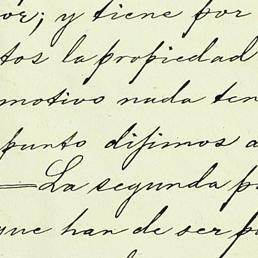 or; y tiene por
tos la propiedad
motivo nada ten
punto dijimos a
—La segunda p
que han de ser p